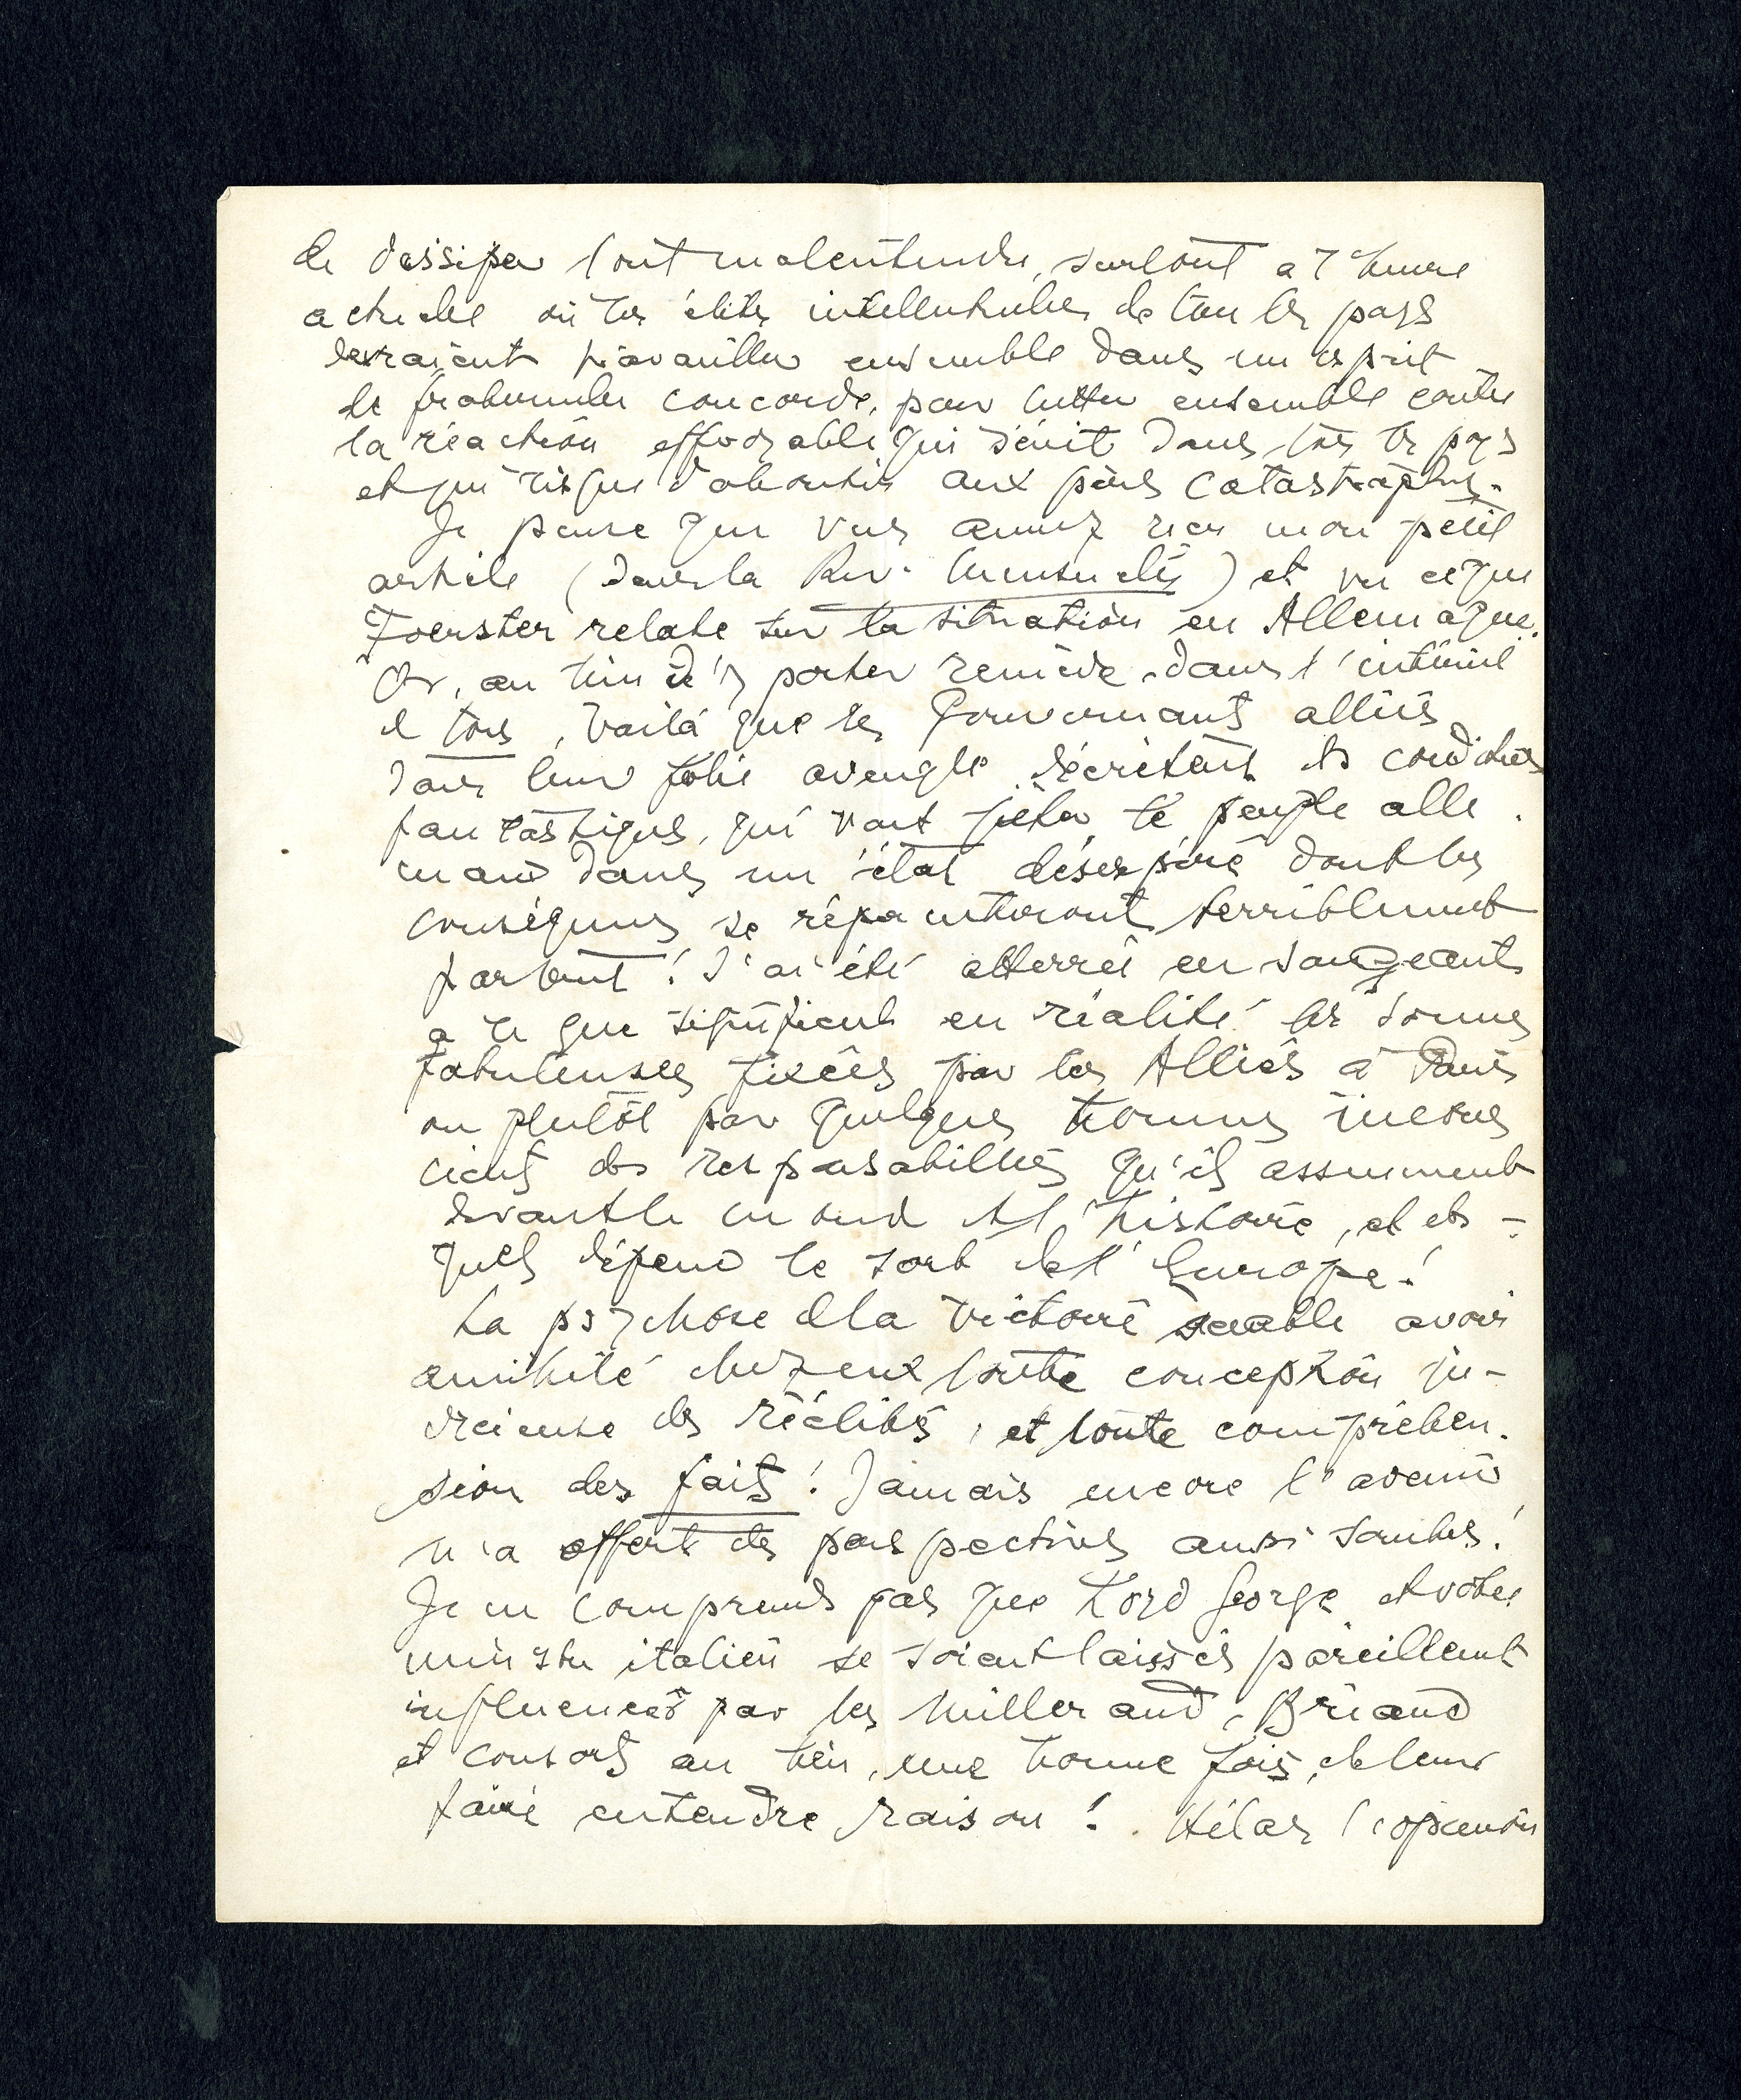 de dissiper tout malentendu, surtout à l'heure
actuelle où les élites intellectuelles de tous les pays
devraient travailler ensemble dans un esprit
de fraternelle concorde, pour lutter ensemble contre
la réaction effroyable qui sévit dans tous les pays
et qui risque d'aboutir aux pires catastrophes.
Je pense que vous aurez reçu mon petit
article (dans la Rev. Mensuelle) et vu ce que
Foerster relate sur la situation en Allemagne.
Or, au lieu d'y porter remède dans l'intérêt
de tous, voilà que les Gouvernants alliés
dans leur folie aveugle décrètent des conditions
fantastiques, qui vont jeter le peuple alle-
mand dans un état désespéré dont les
conséquences se répercuteront terriblement
partout! J'ai été atterrée en songeant
à ce que signifient en réalité les sommes
fabuleuses fixées par les Alliés à Paris
ou plutôt par quelques hommes incons
cients des responsabilités qu'ils assument
devant le monde et l'histoire, et des-
quels dépend le sort de l'Europe!
La psychose de la victoire semble avoir
annihilé chez eux toute conception ju-
dicieuse des réalités, et toute compréhen-
sion des faits! Jamais encore l'avenir
n'a offert des perspectives aussi sombres!
Je ne comprends pas que Loyd George et votre
ministre italien se soient laissés pareillement
influencer par les Millerand, Briand
et consorts au lieu, une bonne fois, de leur
faire entendre raison! Hélas l'opinion